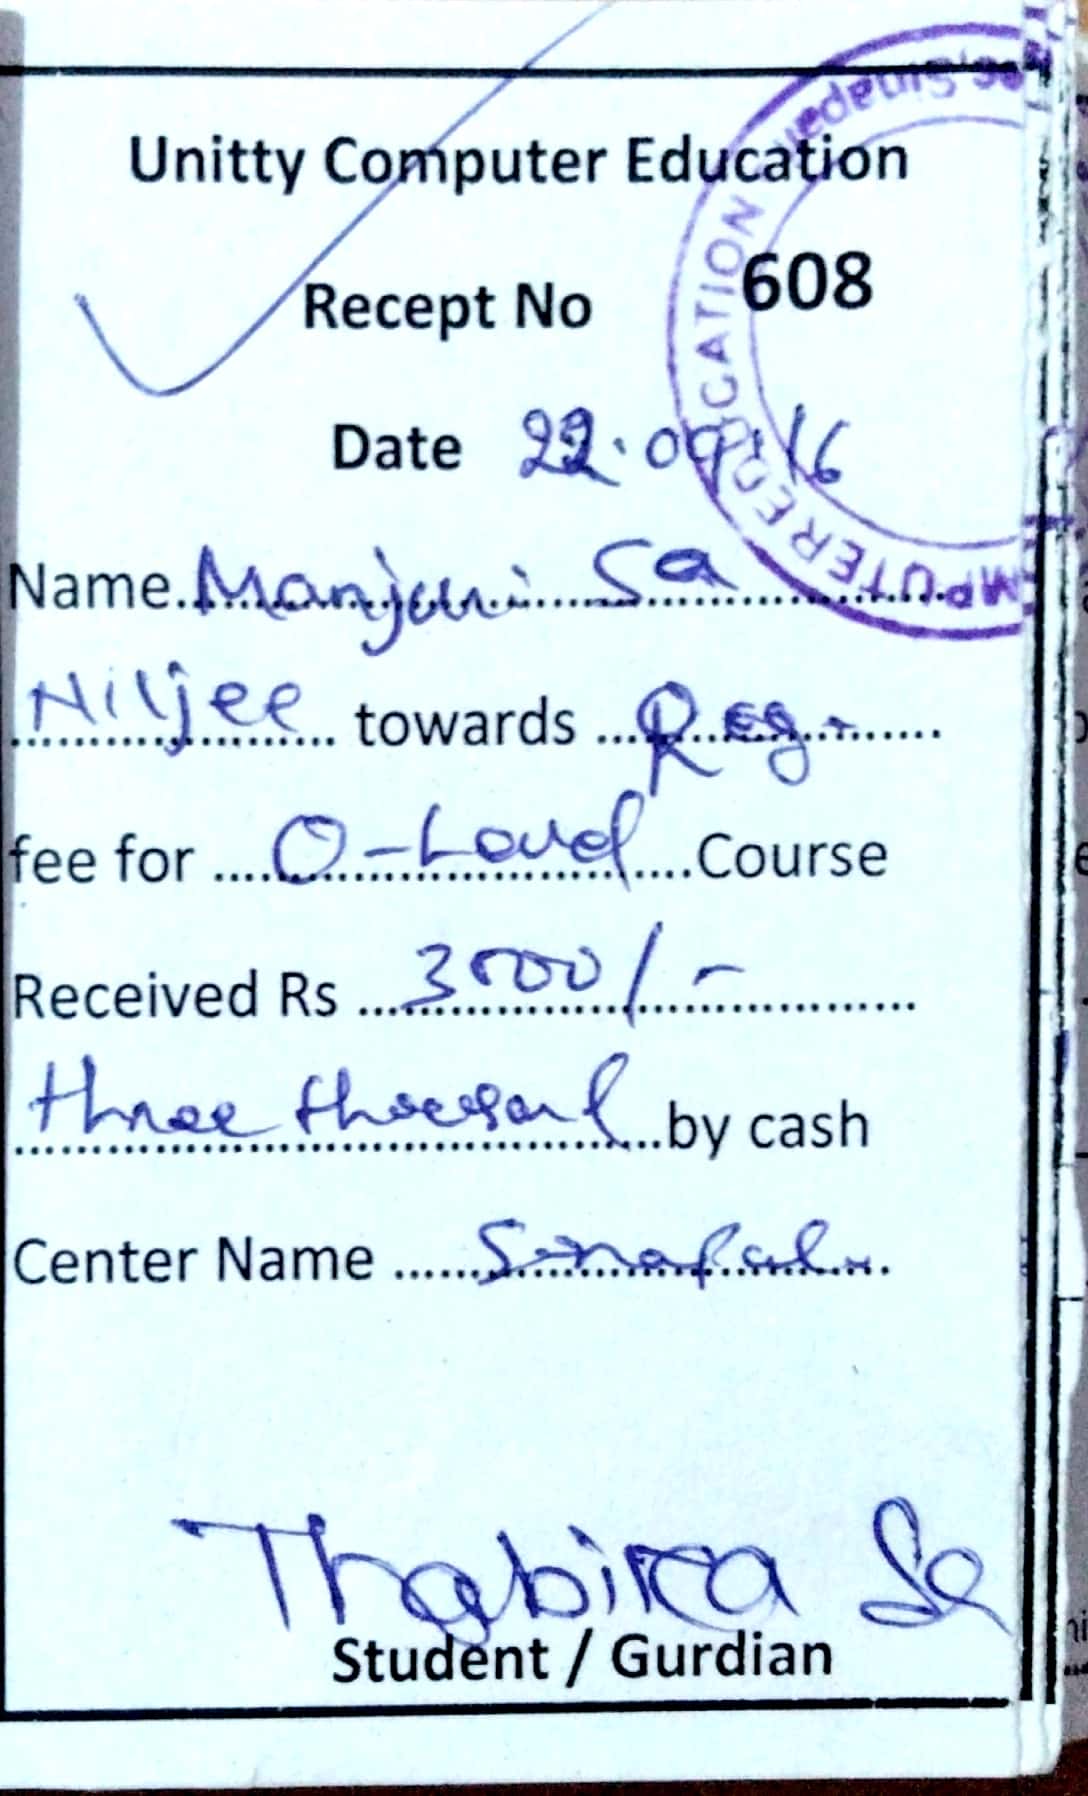 Unitty Computer Education
Recept No 608
Date 22.09.16
Name. Manjuri Sa
Niljee towards Reg.
fee for O-Level Course
Received Rs 3000/-
three thousand by cash
Center Name Sinapali
Thabira Sa
Student / Gurdian
MPUTER EDUCATION